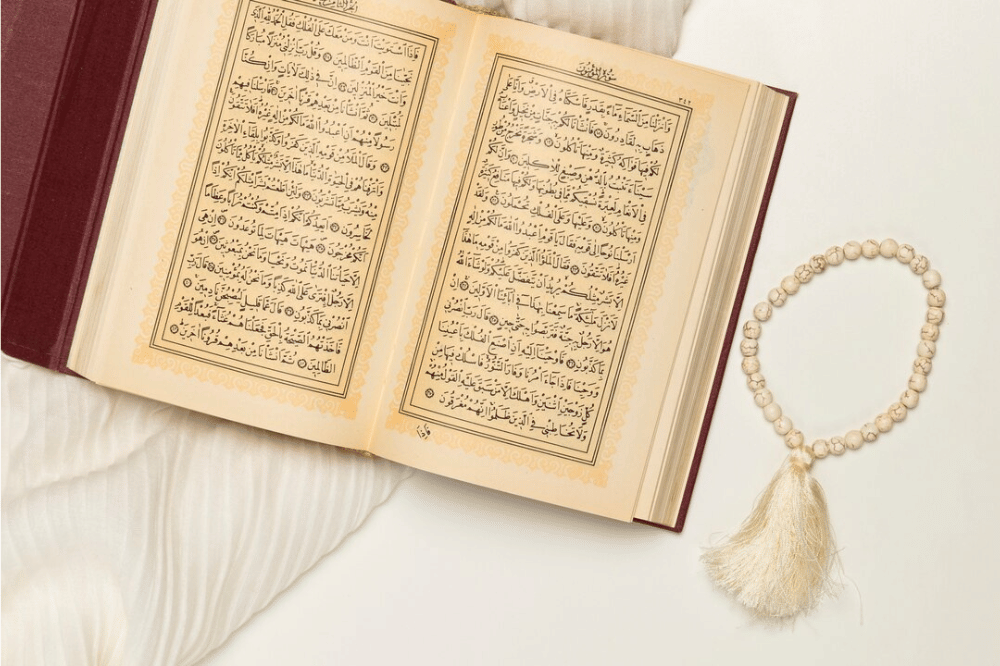 سورة المؤمنون
وَأَنْزَلْنَا مِنَ السَّمَاءِ مَاءً بِقَدَرٍ فَأَسْكَنَّاهُ فِي الْأَرْضِ وَإِنَّا عَلَى
ذَهَابٍ بِهِ لَقَادِرُونَ ١٨ فَأَنْشَأْنَا لَكُمْ بِهِ جَنَّاتٍ مِنْ نَخِيلٍ وَأَعْنَابٍ
لَكُمْ فِيهَا فَوَاكِهُ كَثِيرَةٌ وَمِنْهَا تَأْكُلُونَ ١٩ وَشَجَرَةً تَخْرُجُ مِنْ طُورِ
سَيْنَاءَ تَنْبُتُ بِالدُّهْنِ وَصِبْغٍ لِلْآكِلِينَ ٢٠ وَإِنَّ لَكُمْ
فِي الْأَنْعَامِ لَعِبْرَةً نُسْقِيكُمْ مِمَّا فِي بُطُونِهَا وَلَكُمْ فِيهَا مَنَافِعُ كَثِيرَةٌ
وَمِنْهَا تَأْكُلُونَ ٢١ وَعَلَيْهَا وَعَلَى الْفُلْكِ تُحْمَلُونَ ٢٢ وَلَقَدْ
أَرْسَلْنَا نُوحًا إِلَى قَوْمِهِ فَقَالَ يَا قَوْمِ اعْبُدُوا اللَّهَ مَا لَكُمْ مِنْ إِلَهٍ
غَيْرُهُ أَفَلَا تَتَّقُونَ ٢٣ فَقَالَ الْمَلَأُ الَّذِينَ كَفَرُوا مِنْ قَوْمِهِ مَا هَذَا
إِلَّا بَشَرٌ مِثْلُكُمْ يُرِيدُ أَنْ يَتَفَضَّلَ عَلَيْكُمْ وَلَوْ شَاءَ اللَّهُ
لَأَنْزَلَ مَلَائِكَةً مَا سَمِعْنَا بِهَذَا فِي آبَائِنَا الْأَوَّلِينَ ٢٤ إِنْ
هُوَ إِلَّا رَجُلٌ بِهِ جِنَّةٌ فَتَرَبَّصُوا بِهِ حَتَّى حِينٍ ٢٥ قَالَ رَبِّ انْصُرْنِي
بِمَا كَذَّبُونِ ٢٦ فَأَوْحَيْنَا إِلَيْهِ أَنِ اصْنَعِ الْفُلْكَ بِأَعْيُنِنَا
وَوَحْيِنَا فَإِذَا جَاءَ أَمْرُنَا وَفَارَ التَّنُّورُ فَاسْلُكْ فِيهَا مِنْ
كُلٍّ زَوْجَيْنِ اثْنَيْنِ وَأَهْلَكَ إِلَّا مَنْ سَبَقَ عَلَيْهِ الْقَوْلُ مِنْهُمْ
وَلَا تُخَاطِبْنِي فِي الَّذِينَ ظَلَمُوا إِنَّهُمْ مُغْرَقُونَ
فاذا
فَإِذَا اسْتَوَيْتَ أَنْتَ وَمَنْ مَعَكَ عَلَى الْفُلْكِ فَقُلِ الْحَمْدُ لِلَّهِ الَّذِي
نَجَّانَا مِنَ الْقَوْمِ الظَّالِمِينَ ٢٨ وَقُلْ رَبِّ أَنْزِلْنِي مُنْزَلًا مُبَارَكًا
وَأَنْتَ خَيْرُ الْمُنْزِلِينَ ٢٩ إِنَّ فِي ذَلِكَ لَآيَاتٍ وَإِنْ كُنَّا
لَمُبْتَلِينَ ٣٠ ثُمَّ أَنْشَأْنَا مِنْ بَعْدِهِمْ قَرْنًا آخَرِينَ ٣١ فَأَرْسَلْنَا فِيهِمْ
رَسُولًا مِنْهُمْ أَنِ اعْبُدُوا اللَّهَ مَا لَكُمْ مِنْ إِلَهٍ غَيْرُهُ أَفَلَا تَتَّقُونَ
٣٢ وَقَالَ الْمَلَأُ مِنْ قَوْمِهِ الَّذِينَ كَفَرُوا وَكَذَّبُوا بِلِقَاءِ الْآخِرَةِ
وَأَتْرَفْنَاهُمْ فِي الْحَيَاةِ الدُّنْيَا مَا هَذَا إِلَّا بَشَرٌ مِثْلُكُمْ يَأْكُلُ مِمَّا تَأْكُلُونَ
مِنْهُ وَيَشْرَبُ مِمَّا تَشْرَبُونَ ٣٣ وَلَئِنْ أَطَعْتُمْ بَشَرًا مِثْلَكُمْ إِنَّكُمْ إِذًا
لَخَاسِرُونَ ٣٤ أَيَعِدُكُمْ أَنَّكُمْ إِذَا مِتُّمْ وَكُنْتُمْ تُرَابًا وَعِظَامًا
أَنَّكُمْ مُخْرَجُونَ ٣٥ هَيْهَاتَ هَيْهَاتَ لِمَا تُوعَدُونَ ٣٦ إِنْ هِيَ
إِلَّا حَيَاتُنَا الدُّنْيَا نَمُوتُ وَنَحْيَا وَمَا نَحْنُ بِمَبْعُوثِينَ ٣٧ إِنْ هُوَ
إِلَّا رَجُلٌ افْتَرَى عَلَى اللَّهِ كَذِبًا وَمَا نَحْنُ لَهُ بِمُؤْمِنِينَ ٣٨ قَالَ رَبِّ
انْصُرْنِي بِمَا كَذَّبُونِ ٣٩ قَالَ عَمَّا قَلِيلٍ لَيُصْبِحُنَّ نَادِمِينَ ٤٠
فَأَخَذَتْهُمُ الصَّيْحَةُ بِالْحَقِّ فَجَعَلْنَاهُمْ غُثَاءً فَبُعْدًا لِلْقَوْمِ
الظَّالِمِينَ ٤١ ثُمَّ أَنْشَأْنَا مِنْ بَعْدِهِمْ قُرُونًا آخَرِينَ ٤٢